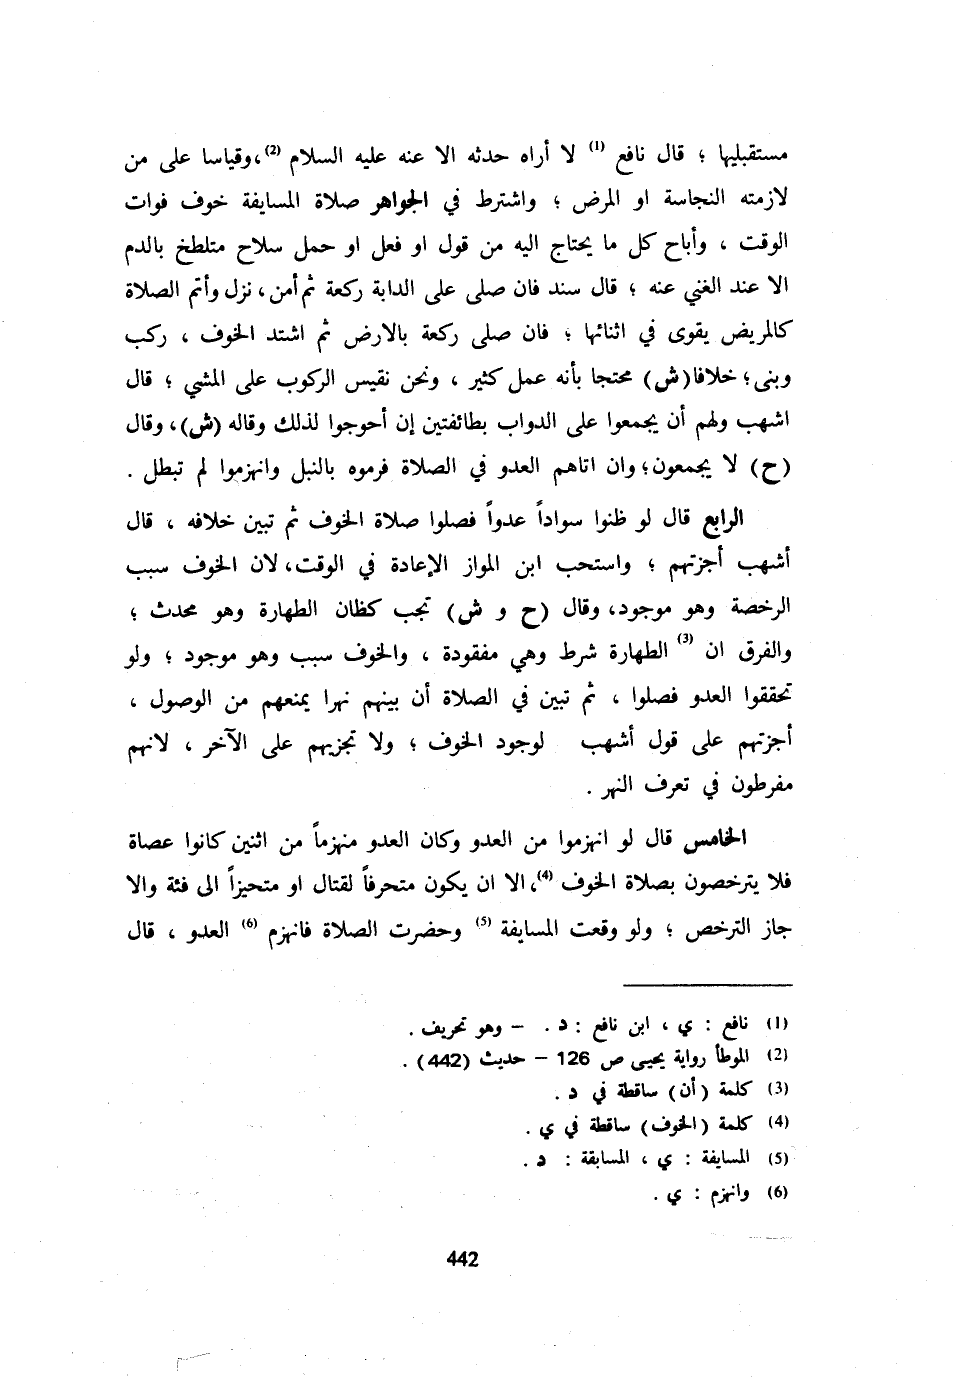 مستقبليها ؛ قال نافع (1) لا أراه حدثه الا عنه عليه السلام (2)،وقياسا على من
لازمته النجاسة او المرض ؛ واشترط في الجواهر صلاة المسايفة خوف فوات
الوقت ، وأباح كل ما يحتاج اليه من قول او فعل او حمل سلاح متلطخ بالدم
الا عند الغني عنه ؛ قال سند فان صلى على الدابة ركعة ثم أمن، نزل وأتم الصلاة
كالمريض يقوى في اثنائها ؛ فان صلى ركعة بالارض ثم اشتد الخوف ، ركب
وبنى؛ خلافا(ش) محتجا بأنه عمل كثير ، ونحن نقيس الركوب على المشي ؛ قال
اشهب ولهم أن يجمعوا على الدواب بطائفتين إن أحوجوا لذلك وقاله (ش)، وقال
(ح) لا يجمعون؛ وان اتاهم العدو في الصلاة فرموه بالنبل وانهزموا لم تبطل .
الرابع قال لو ظنوا سواداً عدواً فصلوا صلاة الخوف ثم تبين خلافه ، قال
أشهب أجزتهم ؛ واستحب ابن المواز الإعادة في الوقت، لان الخوف سبب
الرخصة وهو موجود، وقال (ح و ش) تجب كظان الطهارة وهو محدث ؛
والفرق ان (3) الطهارة شرط وهي مفقودة ، والخوف سبب وهو موجود ؛ ولو
تحققوا العدو فصلوا ، ثم تبين في الصلاة أن بينهم نهرا يمنعهم من الوصول ،
أجزتهم على قول أشهب لوجود الخوف ؛ ولا تجزيهم على الآخر ، لانهم
مفرطون في تعرف النهر .
الخامس قال لو انهزموا من العدو وكان العدو منهزماً من اثنين كانوا عصاة
فلا يترخصون بصلاة الخوف (4)، الا ان يكون متحرفاً لقتال او متحيزاً الى فئة والا
جاز الترخص ؛ ولو وقعت المسايفة (5) وحضرت الصلاة فانهزم (6) العدو ، قال
(1) نافع : ي ، ابن نافع : د . – وهو تحريف .
(2) الموطأ رواية يحيى ص 126 – حديث (442) .
(3) كلمة (أن) ساقطة في د .
(4) كلمة (الخوف) ساقطة في ي .
(5) المسايفة : ي ، المسابقة : د .
(6) وانهزم : ي .
442